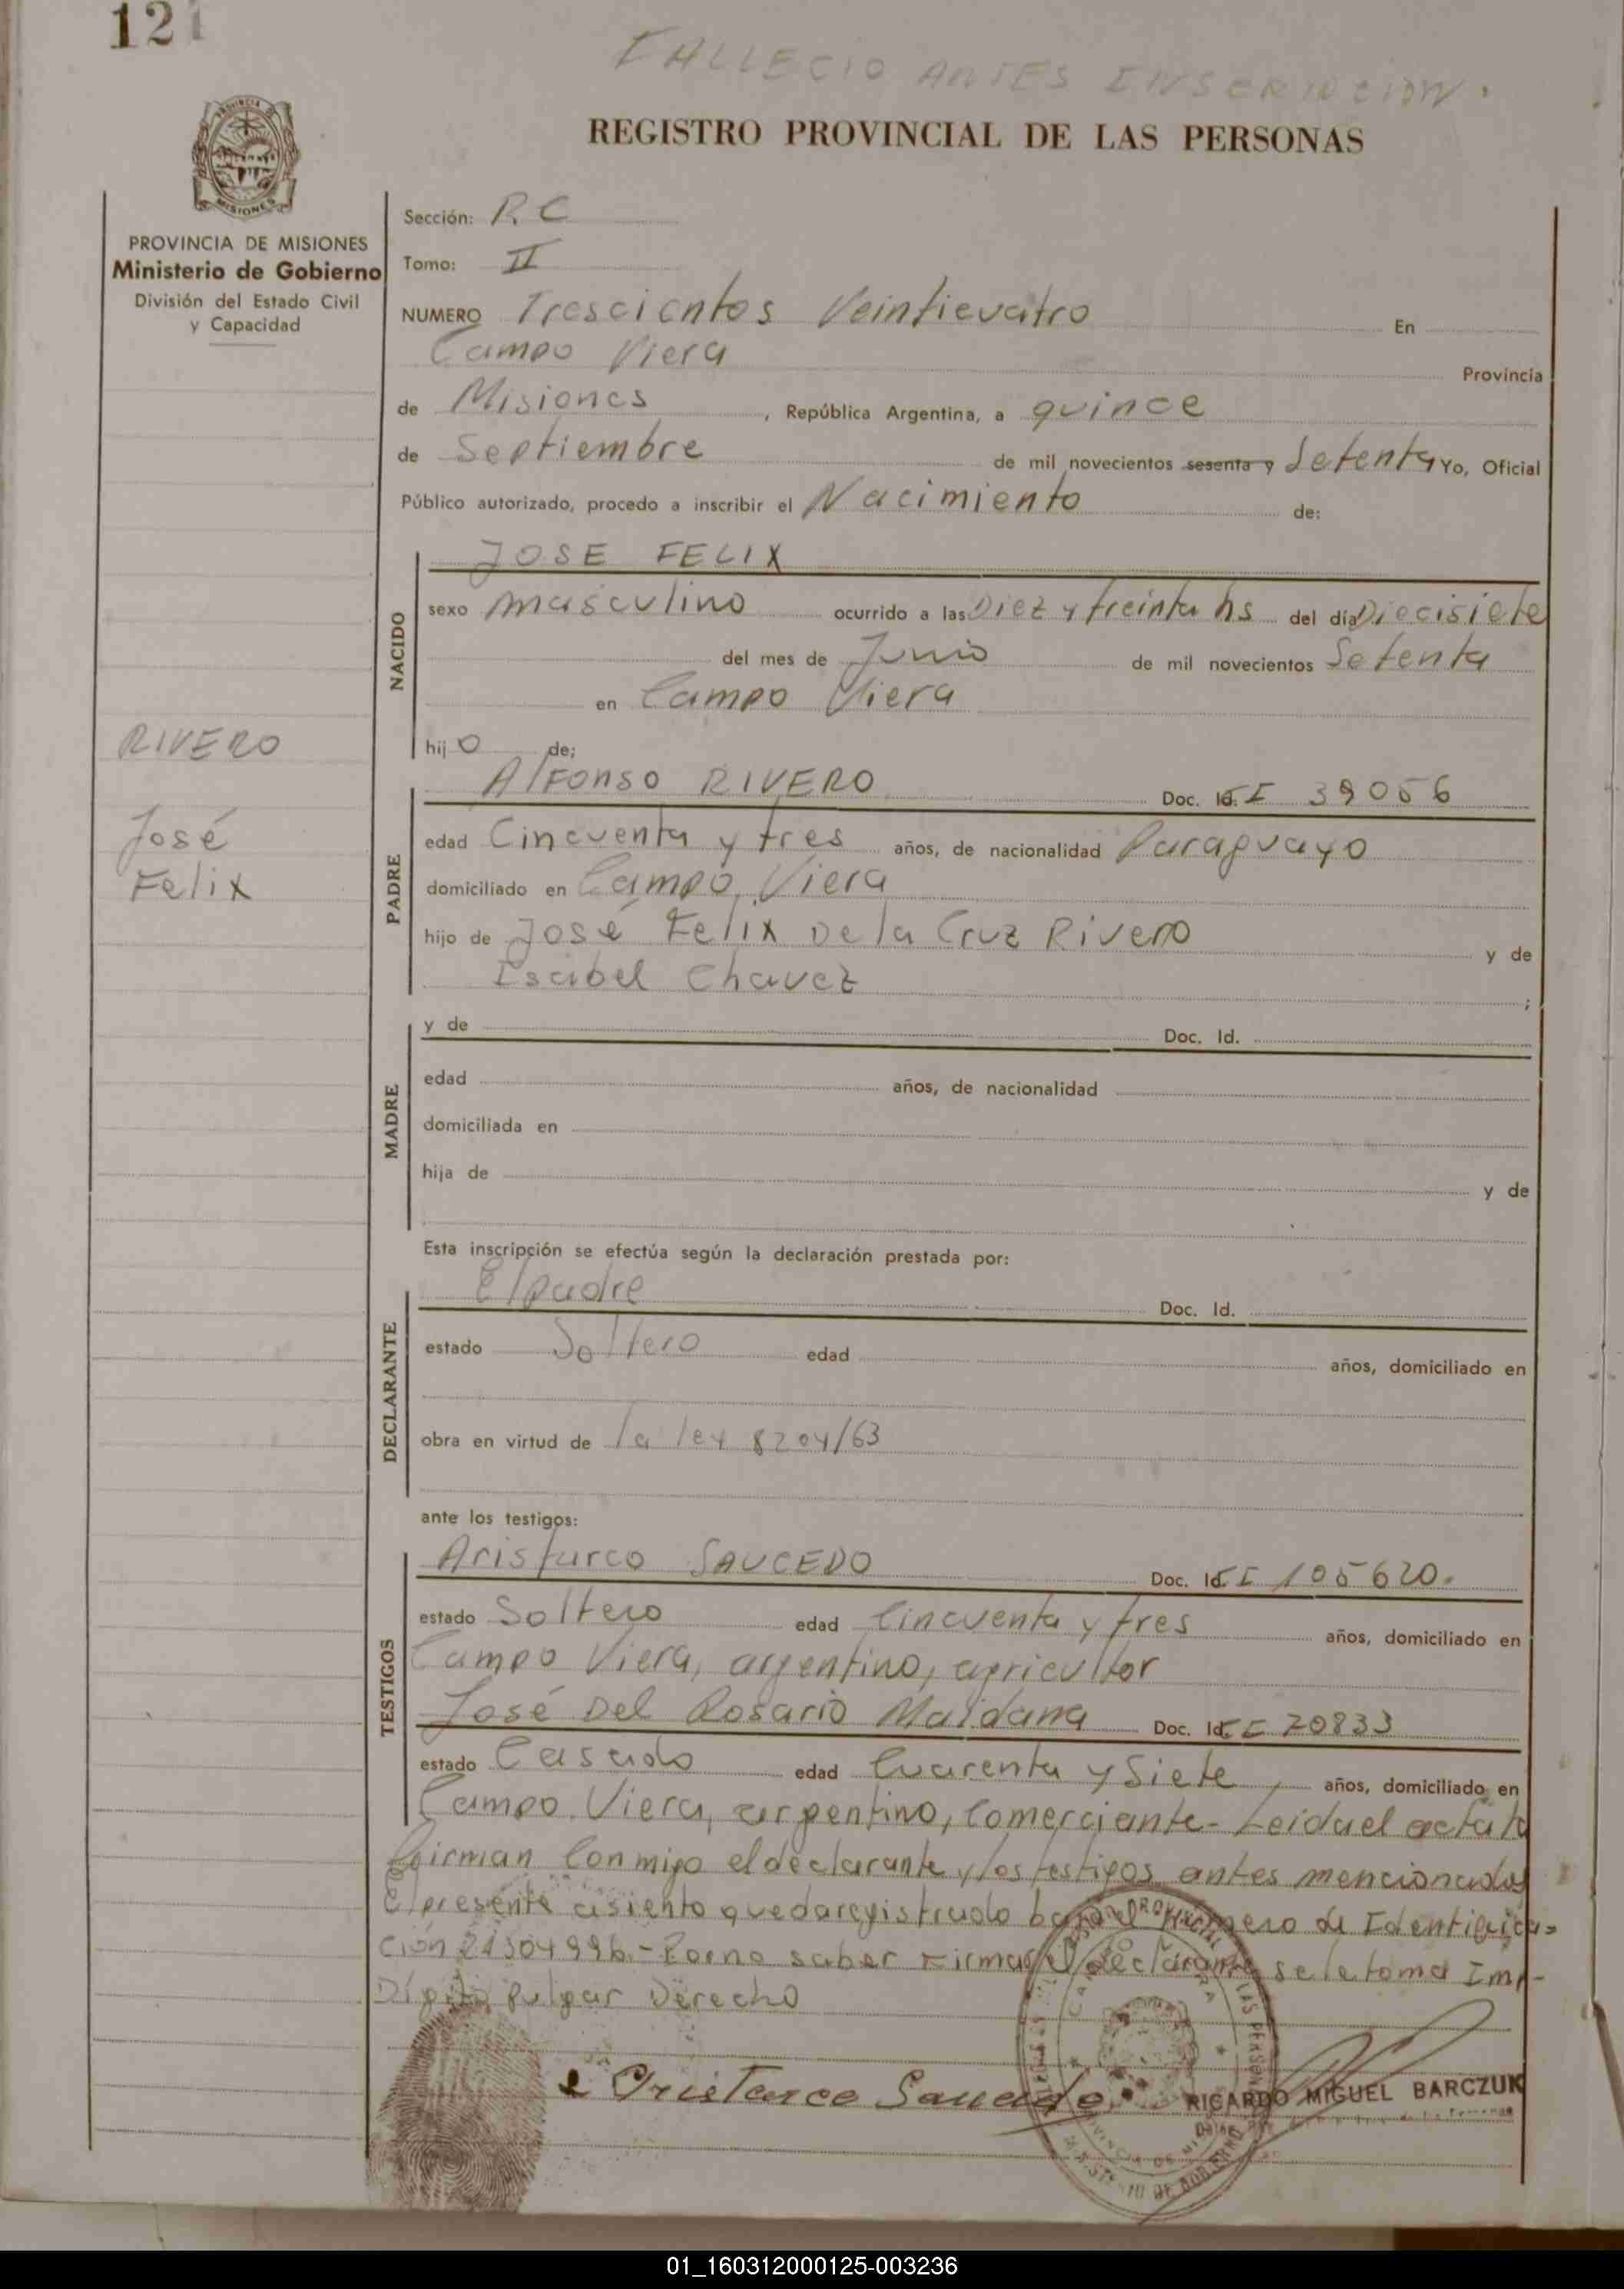 121
FALLECIO ANTES INSCRIPCION.
REGISTRO PROVINCIAL DE LAS PERSONAS
PROVINCIA DE MISIONES
Ministerio de Gobierno
División del Estado Civil
y Capacidad
Sección: R.C
Tomo: II
NUMERO Trescientos Veinticuatro En
Campo Viera Provincia
de Misiones, República Argentina, a quince
de Septiembre de mil novecientos sesenta y Setenta Yo, Oficial
Público autorizado, procedo a inscribir el Nacimiento de:
NACIDO
JOSE FELIX
sexo masculino ocurrido a las Diez y treinta hs del día Diecisiete
del mes de Junio de mil novecientos Setenta
en Campo Viera
hijo de:
RIVERO
José
Felix
PADRE
Alfonso RIVERO Doc. Id. C I 39056
edad Cincuenta y tres años, de nacionalidad Paraguayo
domiciliado en Campo Viera
hijo de José Felix De la Cruz Rivero y de
Isabel Chavez ;
MADRE
y de Doc. Id.
edad años, de nacionalidad
domiciliada en
hija de y de
Esta inscripción se efectúa según la declaración prestada por:
DECLARANTE
El padre Doc. Id.
estado Soltero edad años, domiciliado en
obra en virtud de la ley 8204/63
ante los testigos:
TESTIGOS
Aristarco SAUCEDO Doc. Id. C I 105620.
estado Soltero edad Cincuenta y tres años, domiciliado en
Campo Viera, argentino, agricultor
José Del Rosario Maidana Doc. Id. C I 70833
estado Casado edad Cuarenta y Siete, años, domiciliado en
Campo Viera, argentino, Comerciante- Leida el acta la
firman Conmigo el declarante y los testigos antes mencionados
El presente asiento queda registrado bajo el numero de Identifica=
ción 21304996.- Por no saber Firmar el declarante se le toma Imp-
Digito Pulgar Derecho
Aristarco Saucedo
RICARDO MIGUEL BARCZUK
01_160312000125-003236